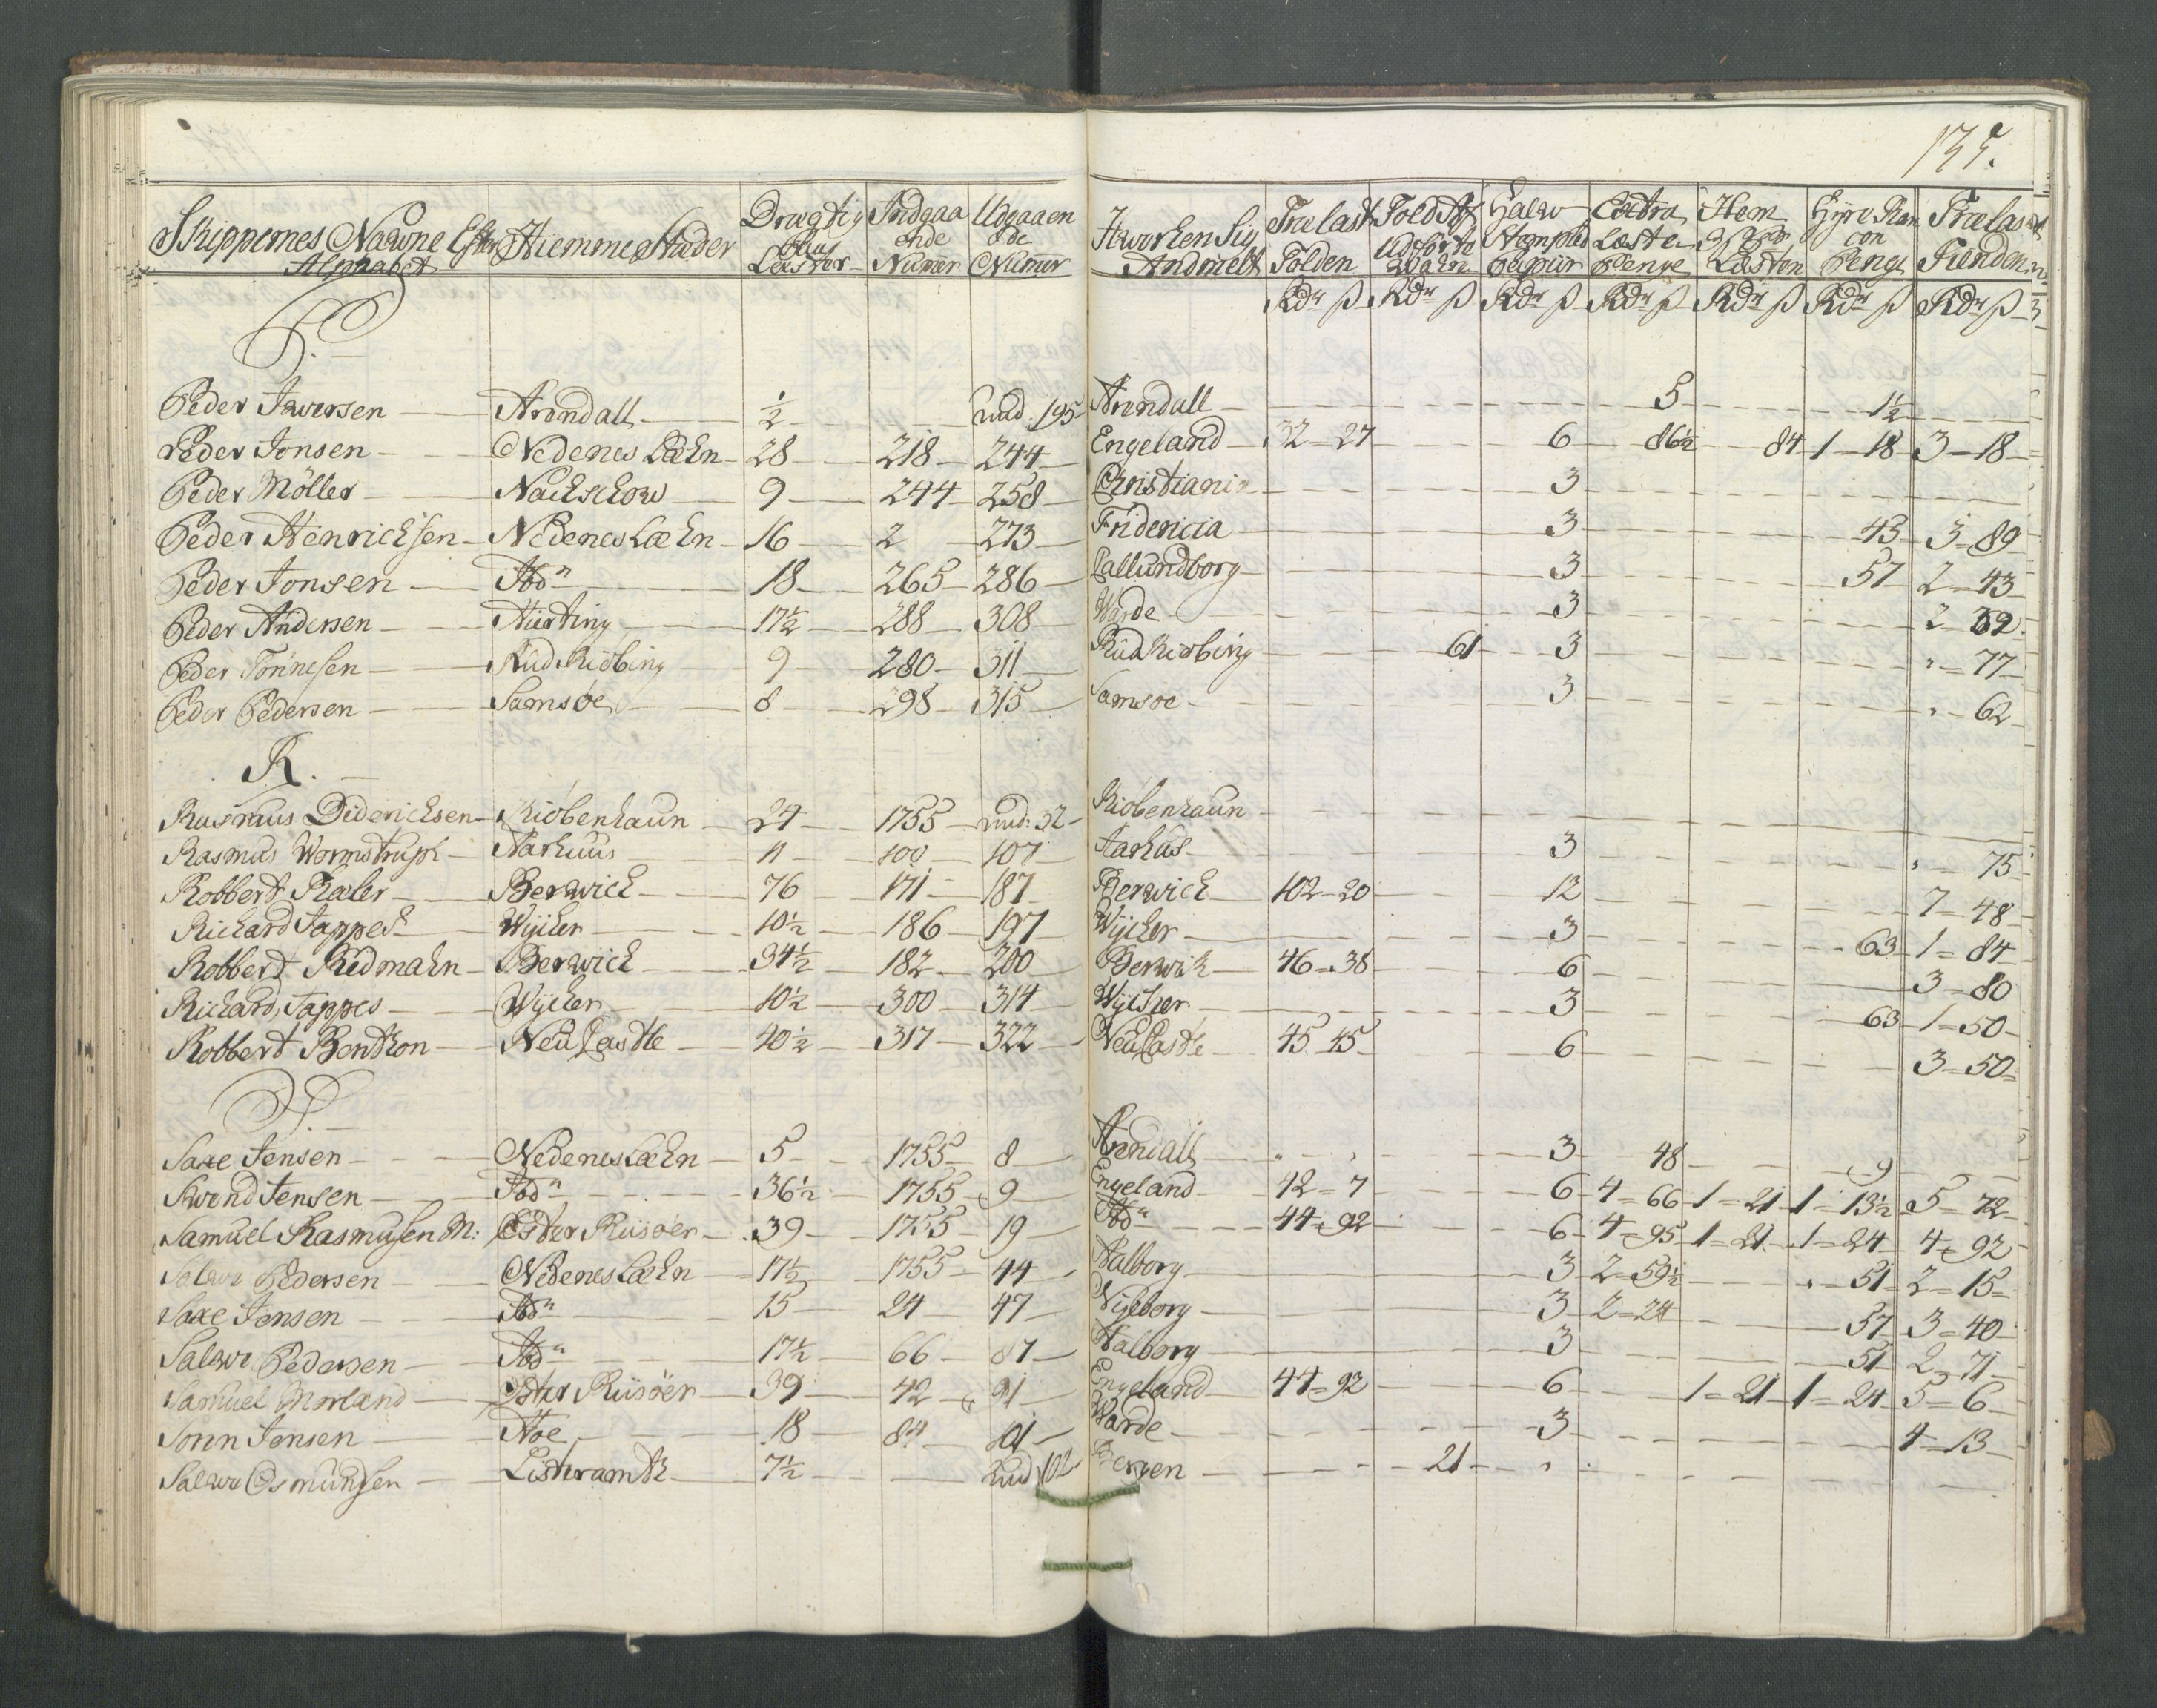 135.
Skippernes Nawne Efter Alphabet | Hiemme Stæder | Drægtig Læster | Indgaaende Numer | Udgaaende Numer | Hworhen Sig Andmelt | Trælast Tolden | Told Af Udførte | Halw Stemplid Papiir | Extra Læste Penge | Læsten | Penge | Trælast Tienden
Rdr ß | Rdr ß | Rdr ß | Rdr ß | Rdr ß | Rdr ß | Rdr ß
P.
Peder Iwersen | Arendall | ½ | | 195 | Arendall | | | | 5 | | 1½ |
Peder Jonsen | Nedenes Læhn | 28 | 218 | 244 | Engeland | 32 = 27 | | 6 | 86½ | 84 | 1 - 18 | 3 - 18
Peder Möller | Nachschow | 9 | 244 | 258 | Christiania | | | 3
Peder Henrichsen | Nedenes Læhn | 16 | 2 | 273 | Fridericia | | | 3 | | | 43 | 3 = 89
Peder Jonsen | Ibdn | 18 | 265 | 286 | Callundborg | | | 3 | | | 57 | 2 = 43
Peder Andersen | | 17½ | 288 | 308 | Warde | | | 3 | | | | 2
Peder Tönnesen | Rudkiöbing | 9 | 280 | 311 | Rudkiöbing | | 61 | 3 | | | | " = 77
Peder Pedersen | Samsöe | 8 | 298 | 315 | Samsoe | | | 3 | | | | " - 62
R.
Rasmus Diderichsen | Kiöbenhaun | 24 | 1755 | 32 | Kiöbenhaun
Rasmus Wormstruph | Aarhuus | 11 | 100 | 107 | Aarhus | | | 3 | | | | " - 75
Robbert Kaler | Berwich | 76 | 171 | 187 | Berwich | 102 - 20 | | 12 | | | | 7 - 48
Richard Tappes | Wijcher | 10½ | 186 | 197 | Wijcher | | | 3 | | | 63 | 1 = 84
Robbert Ridmahn | Berwich | 34½ | 182 | 200 | Berwich | 46 = 38 | | 6 | | | | 3 = 80
Richard Tappes | Wijcher | 10½ | 300 | 314 | Wijcher | | | 3 | | | 63 | 1 = 50
Robbert Benthon | Neu Castle | 40½ | 317 | 322 | Neu Castle | 45 45 | | 6 | | | | 3 = 50
S.
Saxe Jensen | Nedenes Læhn | 5 | 1755 | 8 | Arendall | | | 3 | 48 | | 9 |
Swend Jensen | Ibdn | 36½ | 1755 | 9 | Engeland | 42 = 7 | | 6 | 4 = 66 | 1 = 21 | 1 = 13½ | 5 = 72
Samuel Rasmusen M: | Öster Riisöer | 39 | 1755 | 19 | Ibdn | 44 = 92 | | 6 | 4 = 95 | 1 = 21 | 1 = 24 | 4 = 92
Salwe Pedersen | Nedenes Læhn | 17½ | 1755 | 44 | Aalborg | | | 3 | 2 = 59½ | | " - 51 | 2 - 15
Saxe Jensen | Ibdn | 15 | 24 | 47 | Nijeborg | | | 3 | 2 = 24 | | 57 | 3 = 40
Salwe Pedersen | Ibdn | 17½ | 66 | 87 | Aalborg | | | 3 | | | 51 | 2 - 71
Samuel Morland | Öster Riisöer | 39 | 42 | 91 | Engeland | 44 = 92 | | 6 | | 1 = 21 | 1 = 24 | 5 = 6
Sören Jensen | Hoe | 18 | 84 | 101 | Warde | | | 3 | | | | 4 - 13
Salwe Osmundsen | Listeramth | 7½ | | 102 | Bergen | | 21 | "